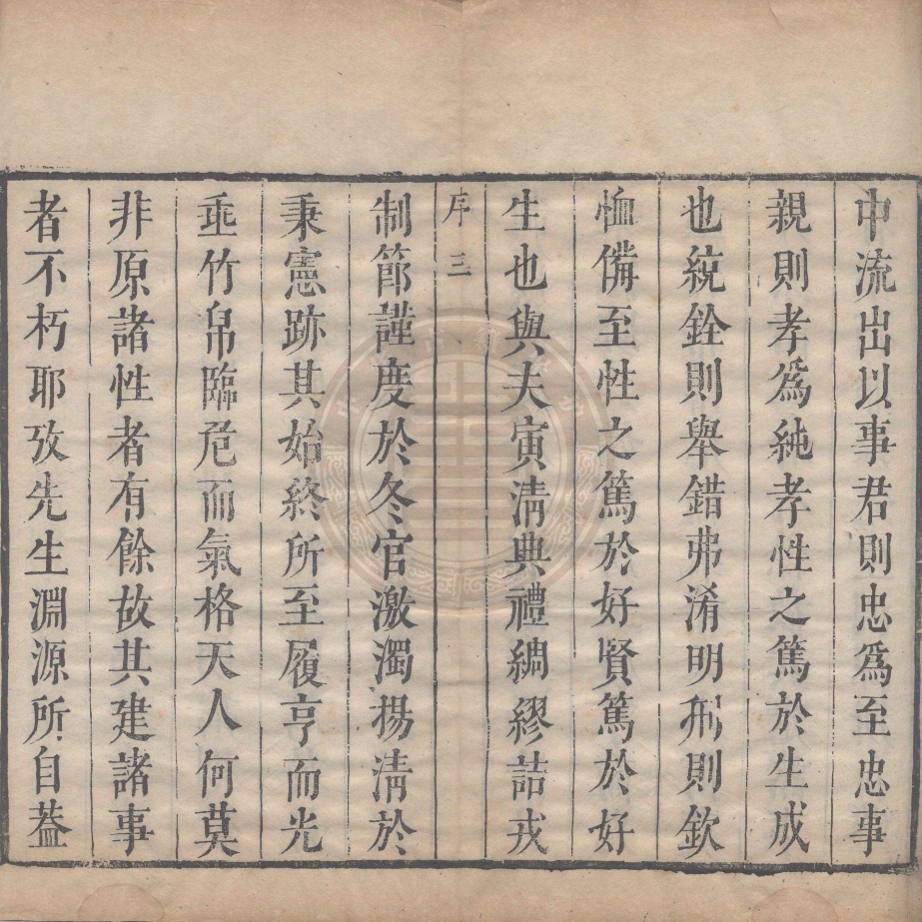 中流出以事君則忠爲至忠事
親則孝爲純孝性之篤於生成
也統銓則舉錯弗淆明刑則欽
恤備至性之篤於好賢篤於好
生也與夫寅淸典禮綢繆詰戎
序 三
制節謹度於冬官激濁揚淸於
秉憲跡其始終所至履亨而光
垂竹帛臨危而氣格天人何莫
非原諸性者有餘故其建諸事
者不朽耶攷先生淵源所自葢